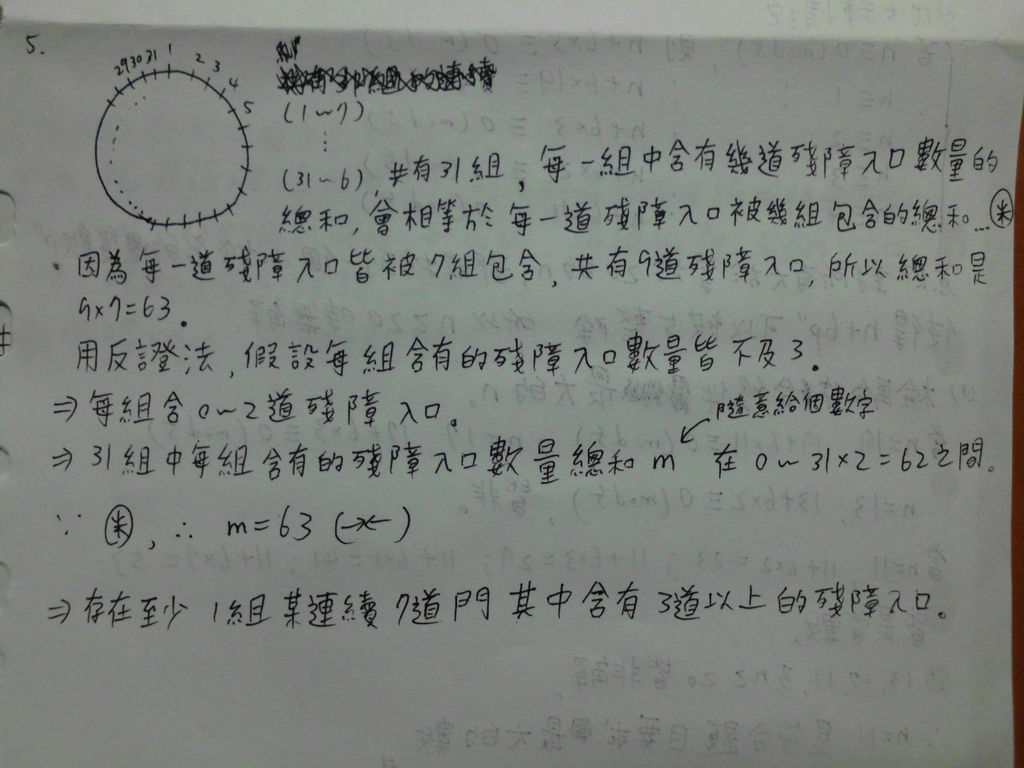 5.
29 30 31 1 2 3 4 5
(1~7)
⋮
(31~6), 共有31組, 每一組中含有幾道殘障入口數量的
總和, 會相等於每一道殘障入口被幾組包含的總和...㊍
因為每一道殘障入口皆被7組包含, 共有9道殘障入口, 所以總和是
9×7=63.
用反證法, 假設每組含有的殘障入口數量皆不及3.
⇒ 每組含0~2道殘障入口。
隨意給個數字
⇒ 31組中每組含有的殘障入口數量總和 m 在0~31×2=62之間。
∵ ㊍, ∴ m=63 (→←)
⇒ 存在至少1組某連續7道門其中含有3道以上的殘障入口。